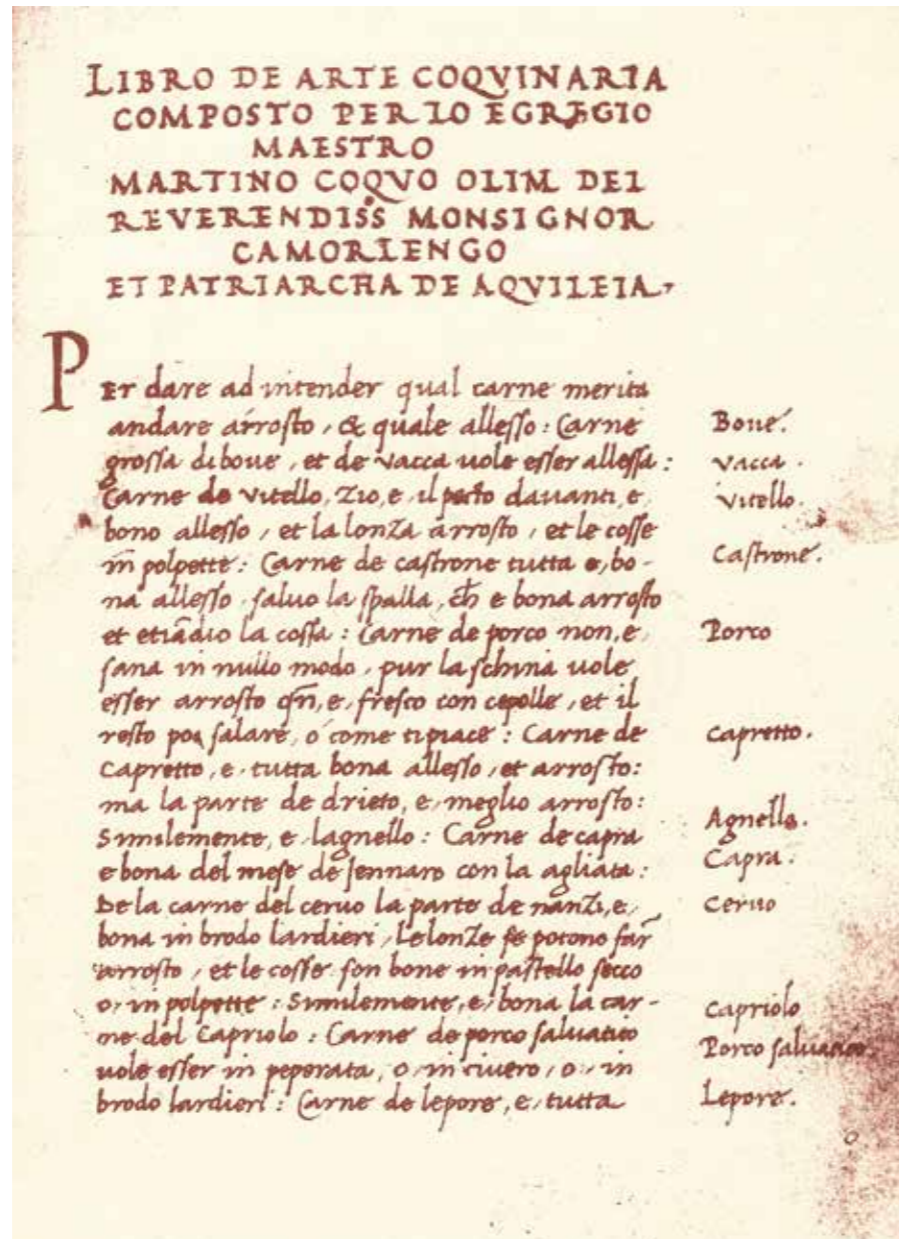 LIBRO DE ARTE COQVINARIA
COMPOSTO PER LO EGREGIO
MAESTRO
MARTINO COQVO OLIM DEL
REVERENDISS MONSIGNOR
CAMORLENGO
ET PATRIARCHA DE AQVILEIA,
PER dare ad intender qual carne merita
andare arrosto, & quale allesso: Carne
Boue.
grossa di boue, et de vacca uole esser allessa:
vacca.
Carne de vitello, Zio, e, il petto dauanti, e,
vitello.
bono allesso, et la lonza arrosto, et le cosse
in polpette: Carne de castrone tutta e, bo-
Castrone.
na allesso, saluo la spalla, ch̄ e bona arrosto
et etiādio la cossa: Carne de porco non, e,
Porco
sana in nullo modo, pur la schina uole
esser arrosto qn̄, e, fresco con cepolle, et il
resto poi salare, ó come ti piace: Carne de
Capretto.
Capretto, e, tutta bona allesso, et arrosto:
ma la parte de drieto, e, meglio arrosto:
Agnello.
Similemente, e, lagnello: Carne de capra
Capra.
e bona del mese de Jennaro con la agliata:
De la carne del ceruo la parte de nanzi, e,
ceruo
bona in brodo lardieri, le lonze se potono far
arrosto, et le cosse son bone in pastello secco
o, in polpette: Similemente, e, bona la car-
Capriolo
ne del Capriolo: Carne de porco saluatico
Porco saluatico.
uole esser in peperata, o, in ciuero, o, in
brodo lardieri: Carne de lepore, e, tutta
Lepore.